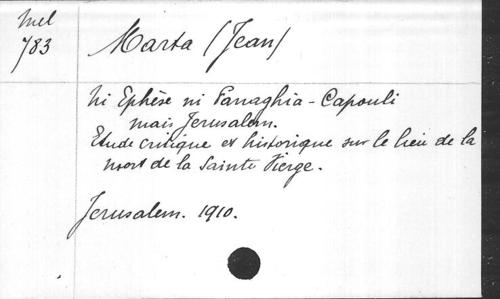 Mel
783
Marta (Jean)
Ni Ephèse ni Panaghia-Capouli
mais Jerusalem.
Etude critique et historique sur le lieu de la
mort de la Sainte Vierge.
Jerusalem. 1910.